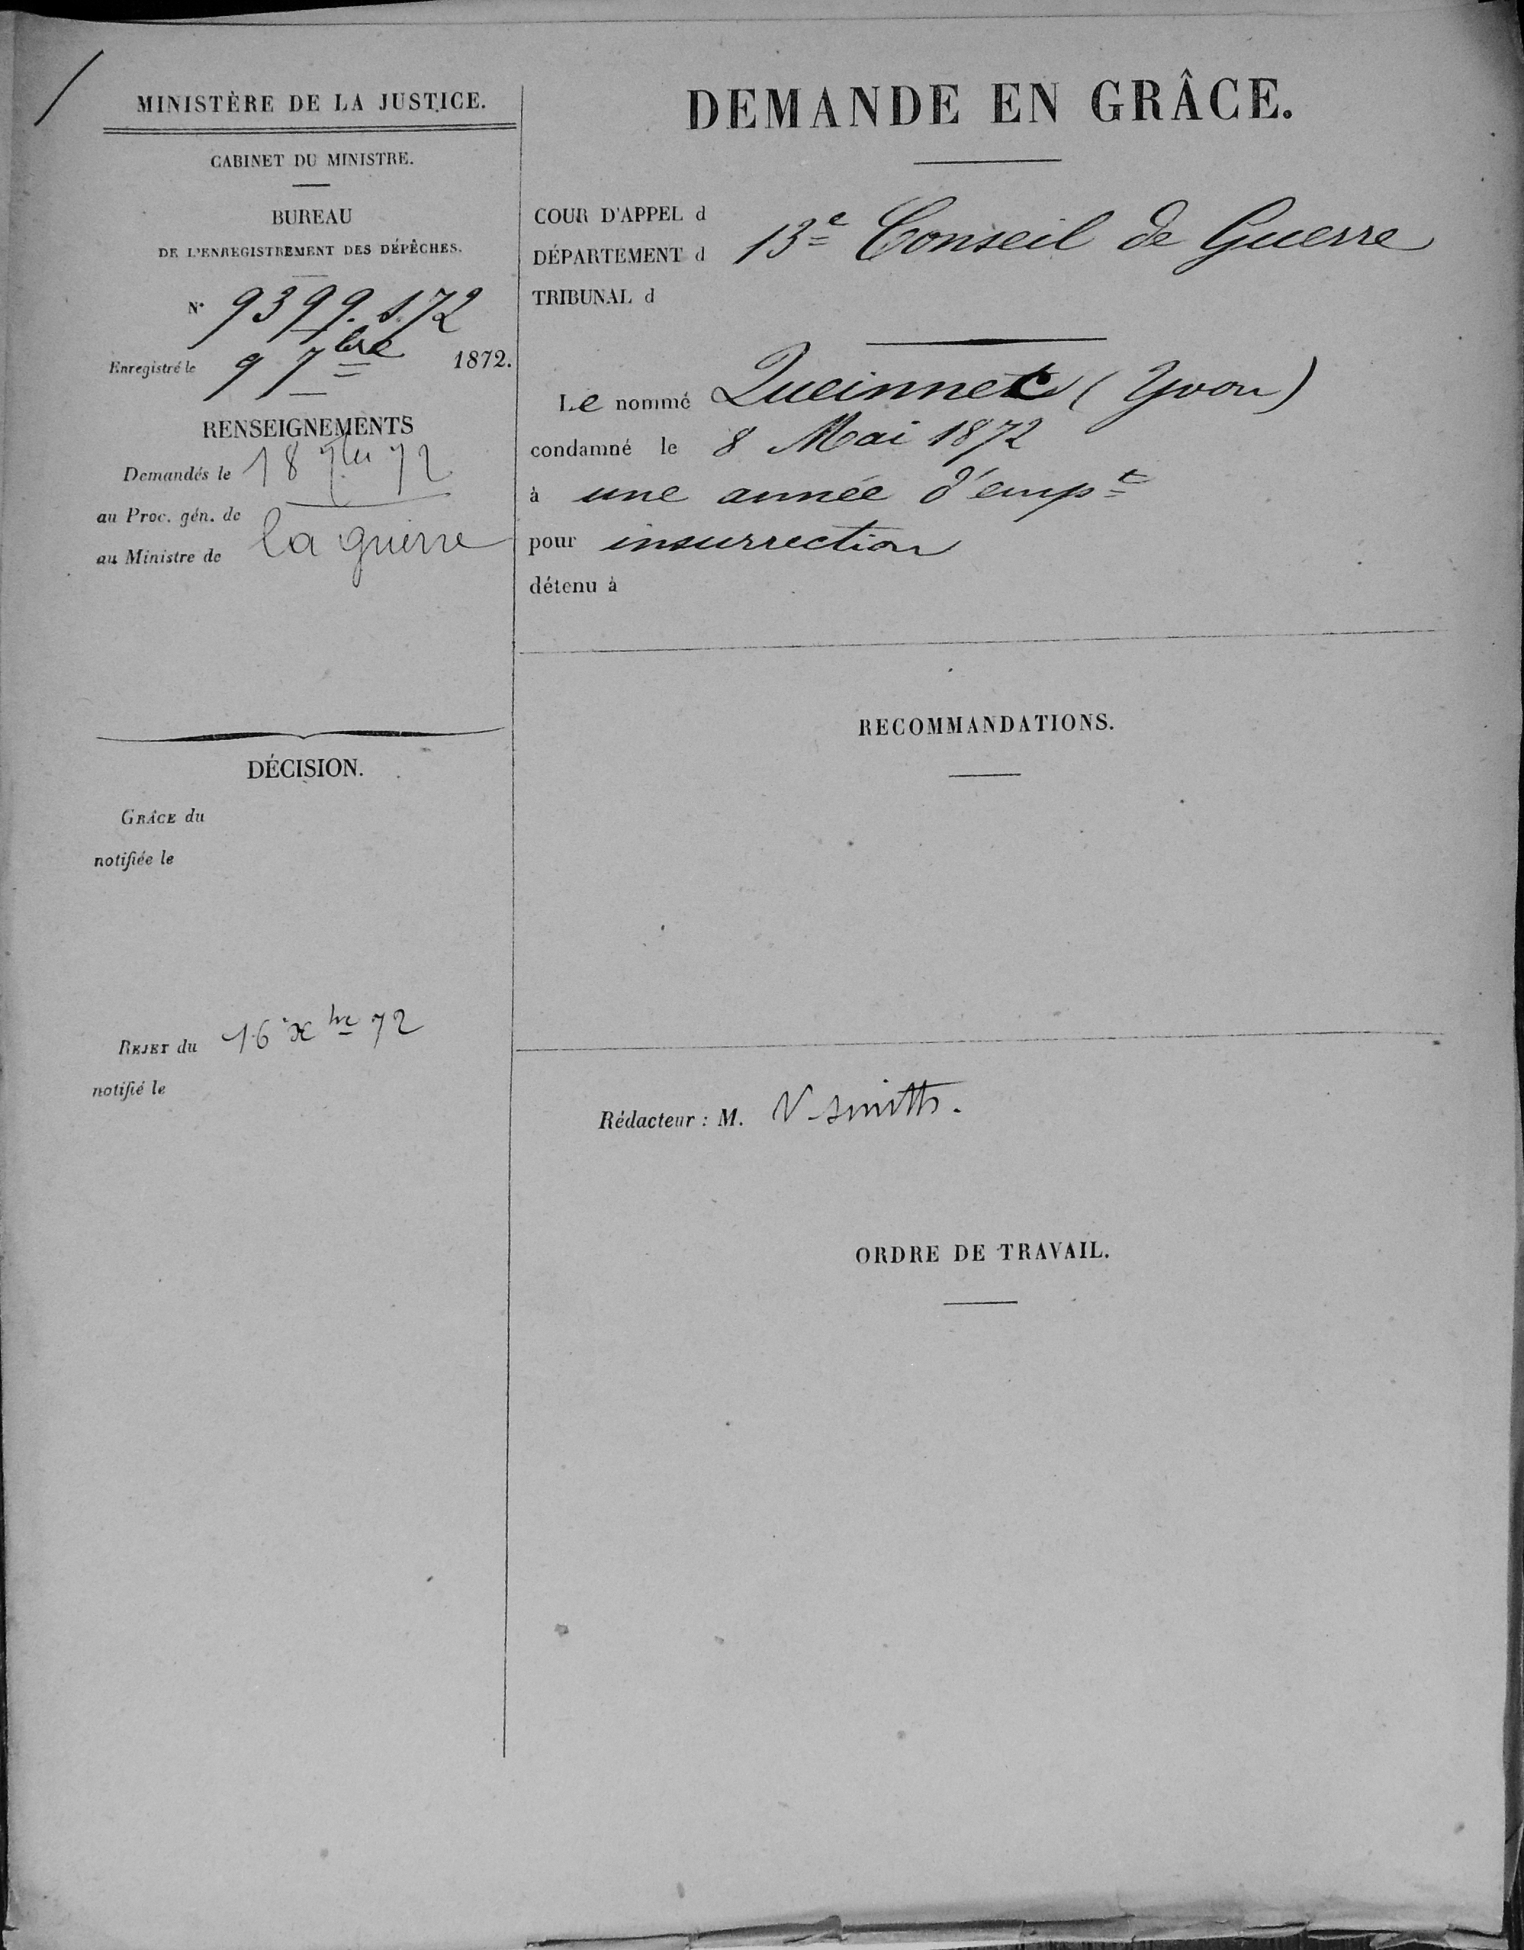 MINISTÈRE DE LA JUSTICE.
CABINET DU MINISTRE.
BUREAU
DE L'ENREGISTREMENT DES DÉPÊCHES.
N° 9399. S. 72
Enregistré le 9 7bre 1872.
RENSEIGNEMENTS
Demandés le 18 7bre 72
au Proc. gén. de
au Ministre de la guerre
DÉCISION.
GRÂCE du
notifiée le
REJET du 16 xbre 72
notifié le
DEMANDE EN GRÂCE.
COUR D'APPEL d
DÉPARTEMENT d 13e Conseil de Guerre
TRIBUNAL d
Le nommé Queinnec (Yvon)
condamné le 8 Mai 1872
à une année d'empt
pour insurrection
détenu à
RECOMMANDATIONS.
Rédacteur : M. V. Smith.
ORDRE DE TRAVAIL.